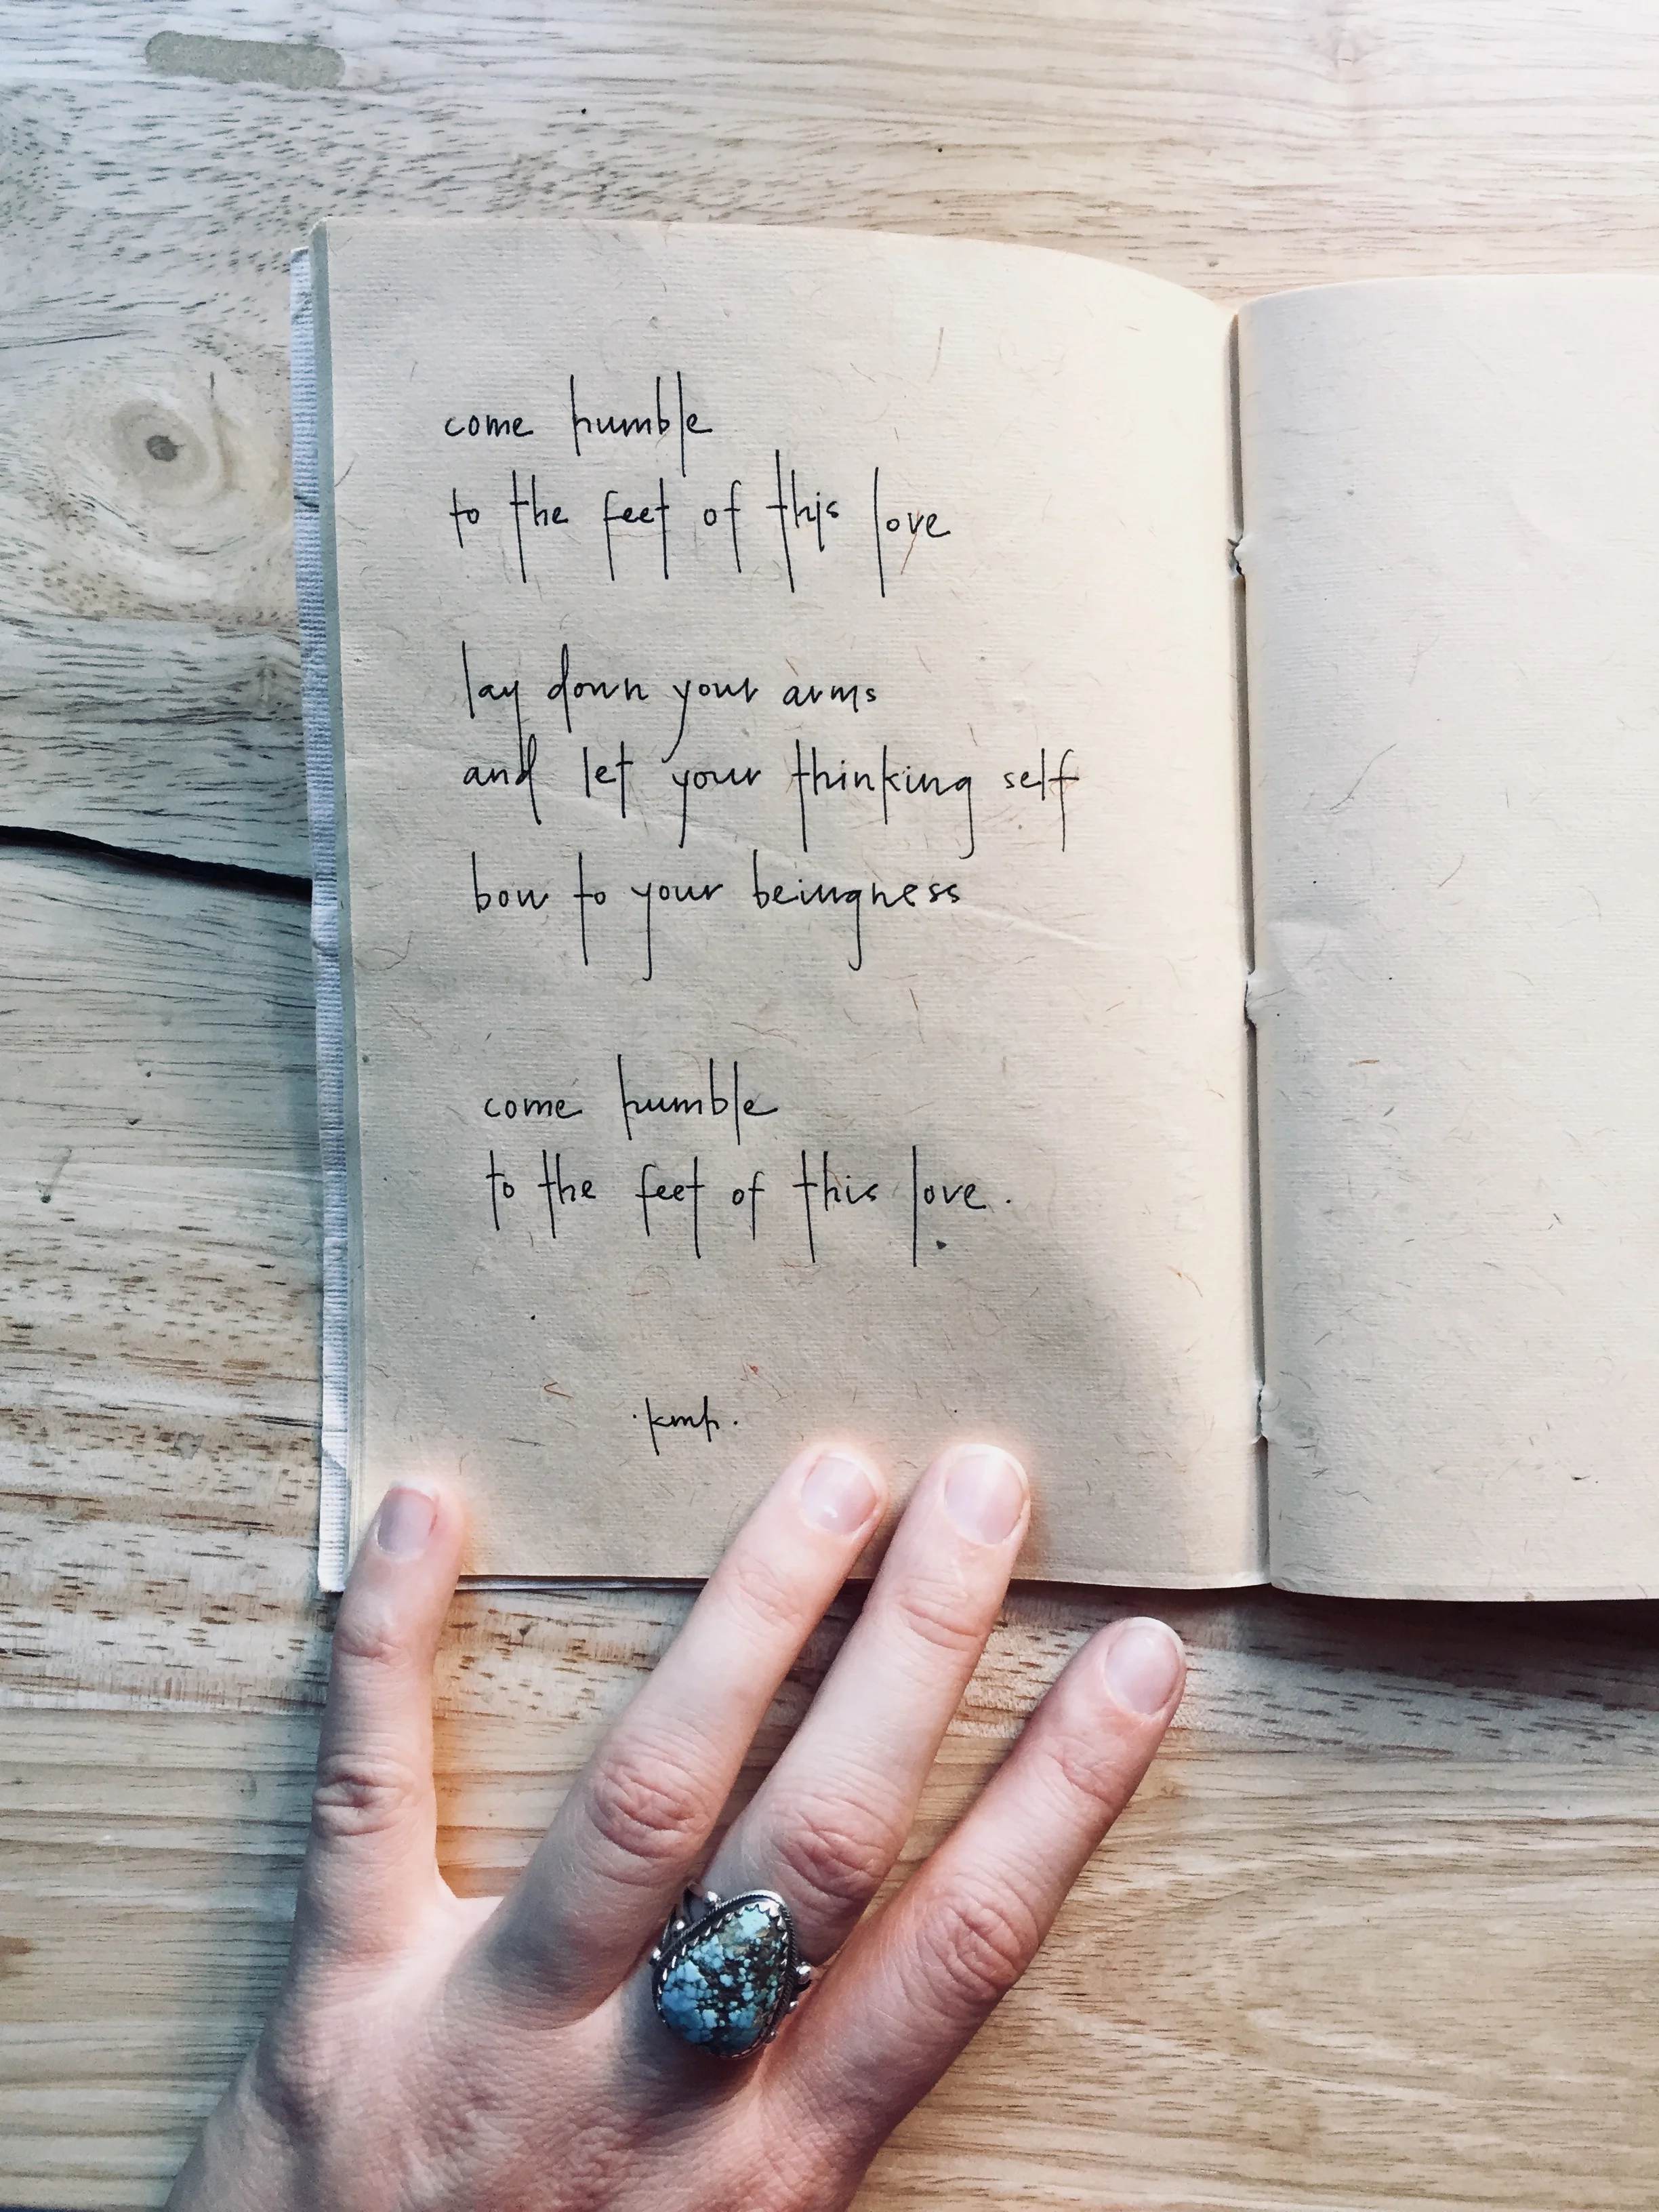 come humble
to the feet of this love
lay down your arms
and let your thinking self
bow to your beingness
come humble
to the feet of this love.
.kmh.